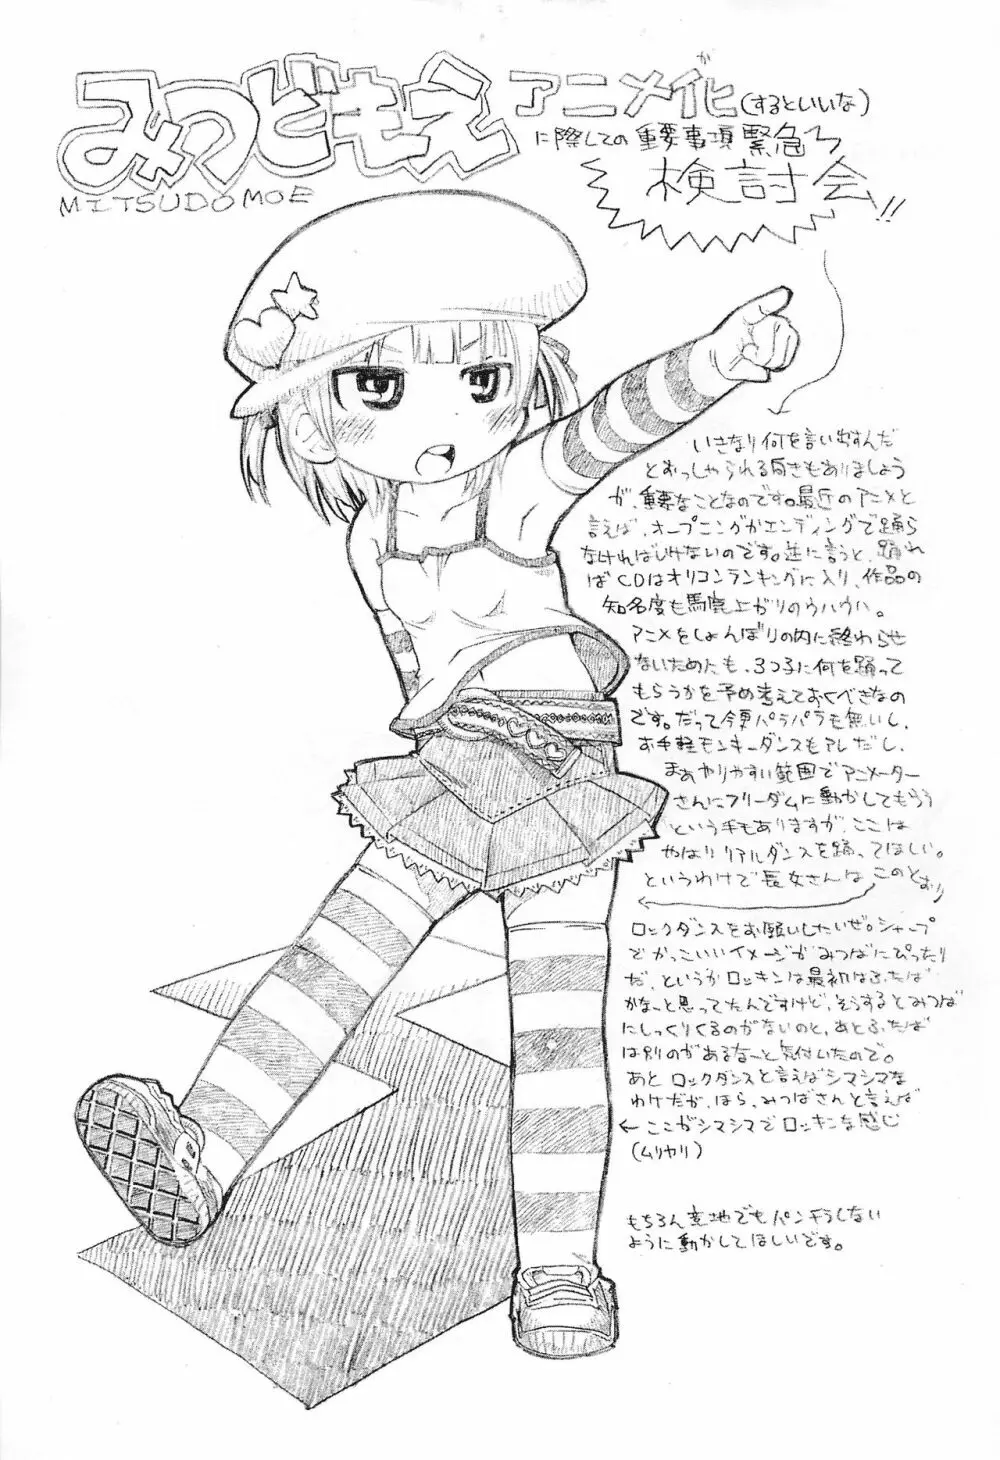 みつどもえ アニメ化(するといいな)
が
に際しての重要事項緊急
MITSUDOMOE
検討会!!
いきなり何を言い出すんだ
とおっしゃられる向きもありましょう
が、重要なことなのです。最近のアニメと
言えば、オープニングかエンディングで踊ら
なければいけないのです。逆に言うと、踊れ
ばCDはオリコンランキングに入り、作品の
知名度も馬鹿上がりのウハウハ。
アニメをしょんぼりの内に終わらせ
ないためにも、3つ子に何を踊って
もらうかを予め考えておくべきなの
です。だって今更パラパラも無いし、
お手軽モンキーダンスもアレだし、
まぁやりやすい範囲でアニメーター
さんにフリーダムに動かしてもらう
という手もありますが、ここは
やはりリアルダンスを踊ってほしい。
というわけで長女さんはこのとおり
ロックダンスをお願いしたいぜ。シャープ
でかっこいいイメージがみつばにぴったり
だ、というかロッキンは最初はふたば
かなっと思ってたんですけど、そうするとみつば
にしっくりくるのがないのと、あとふたば
は別のがあるなーと気付いたので。
あとロックダンスと言えばシマシマな
わけだが、ほら、みつばさんと言えば
←ここがシマシマでロッキンな感じ
(ムリヤリ)
もちろん意地でもパンチラしない
ように動かしてほしいです。